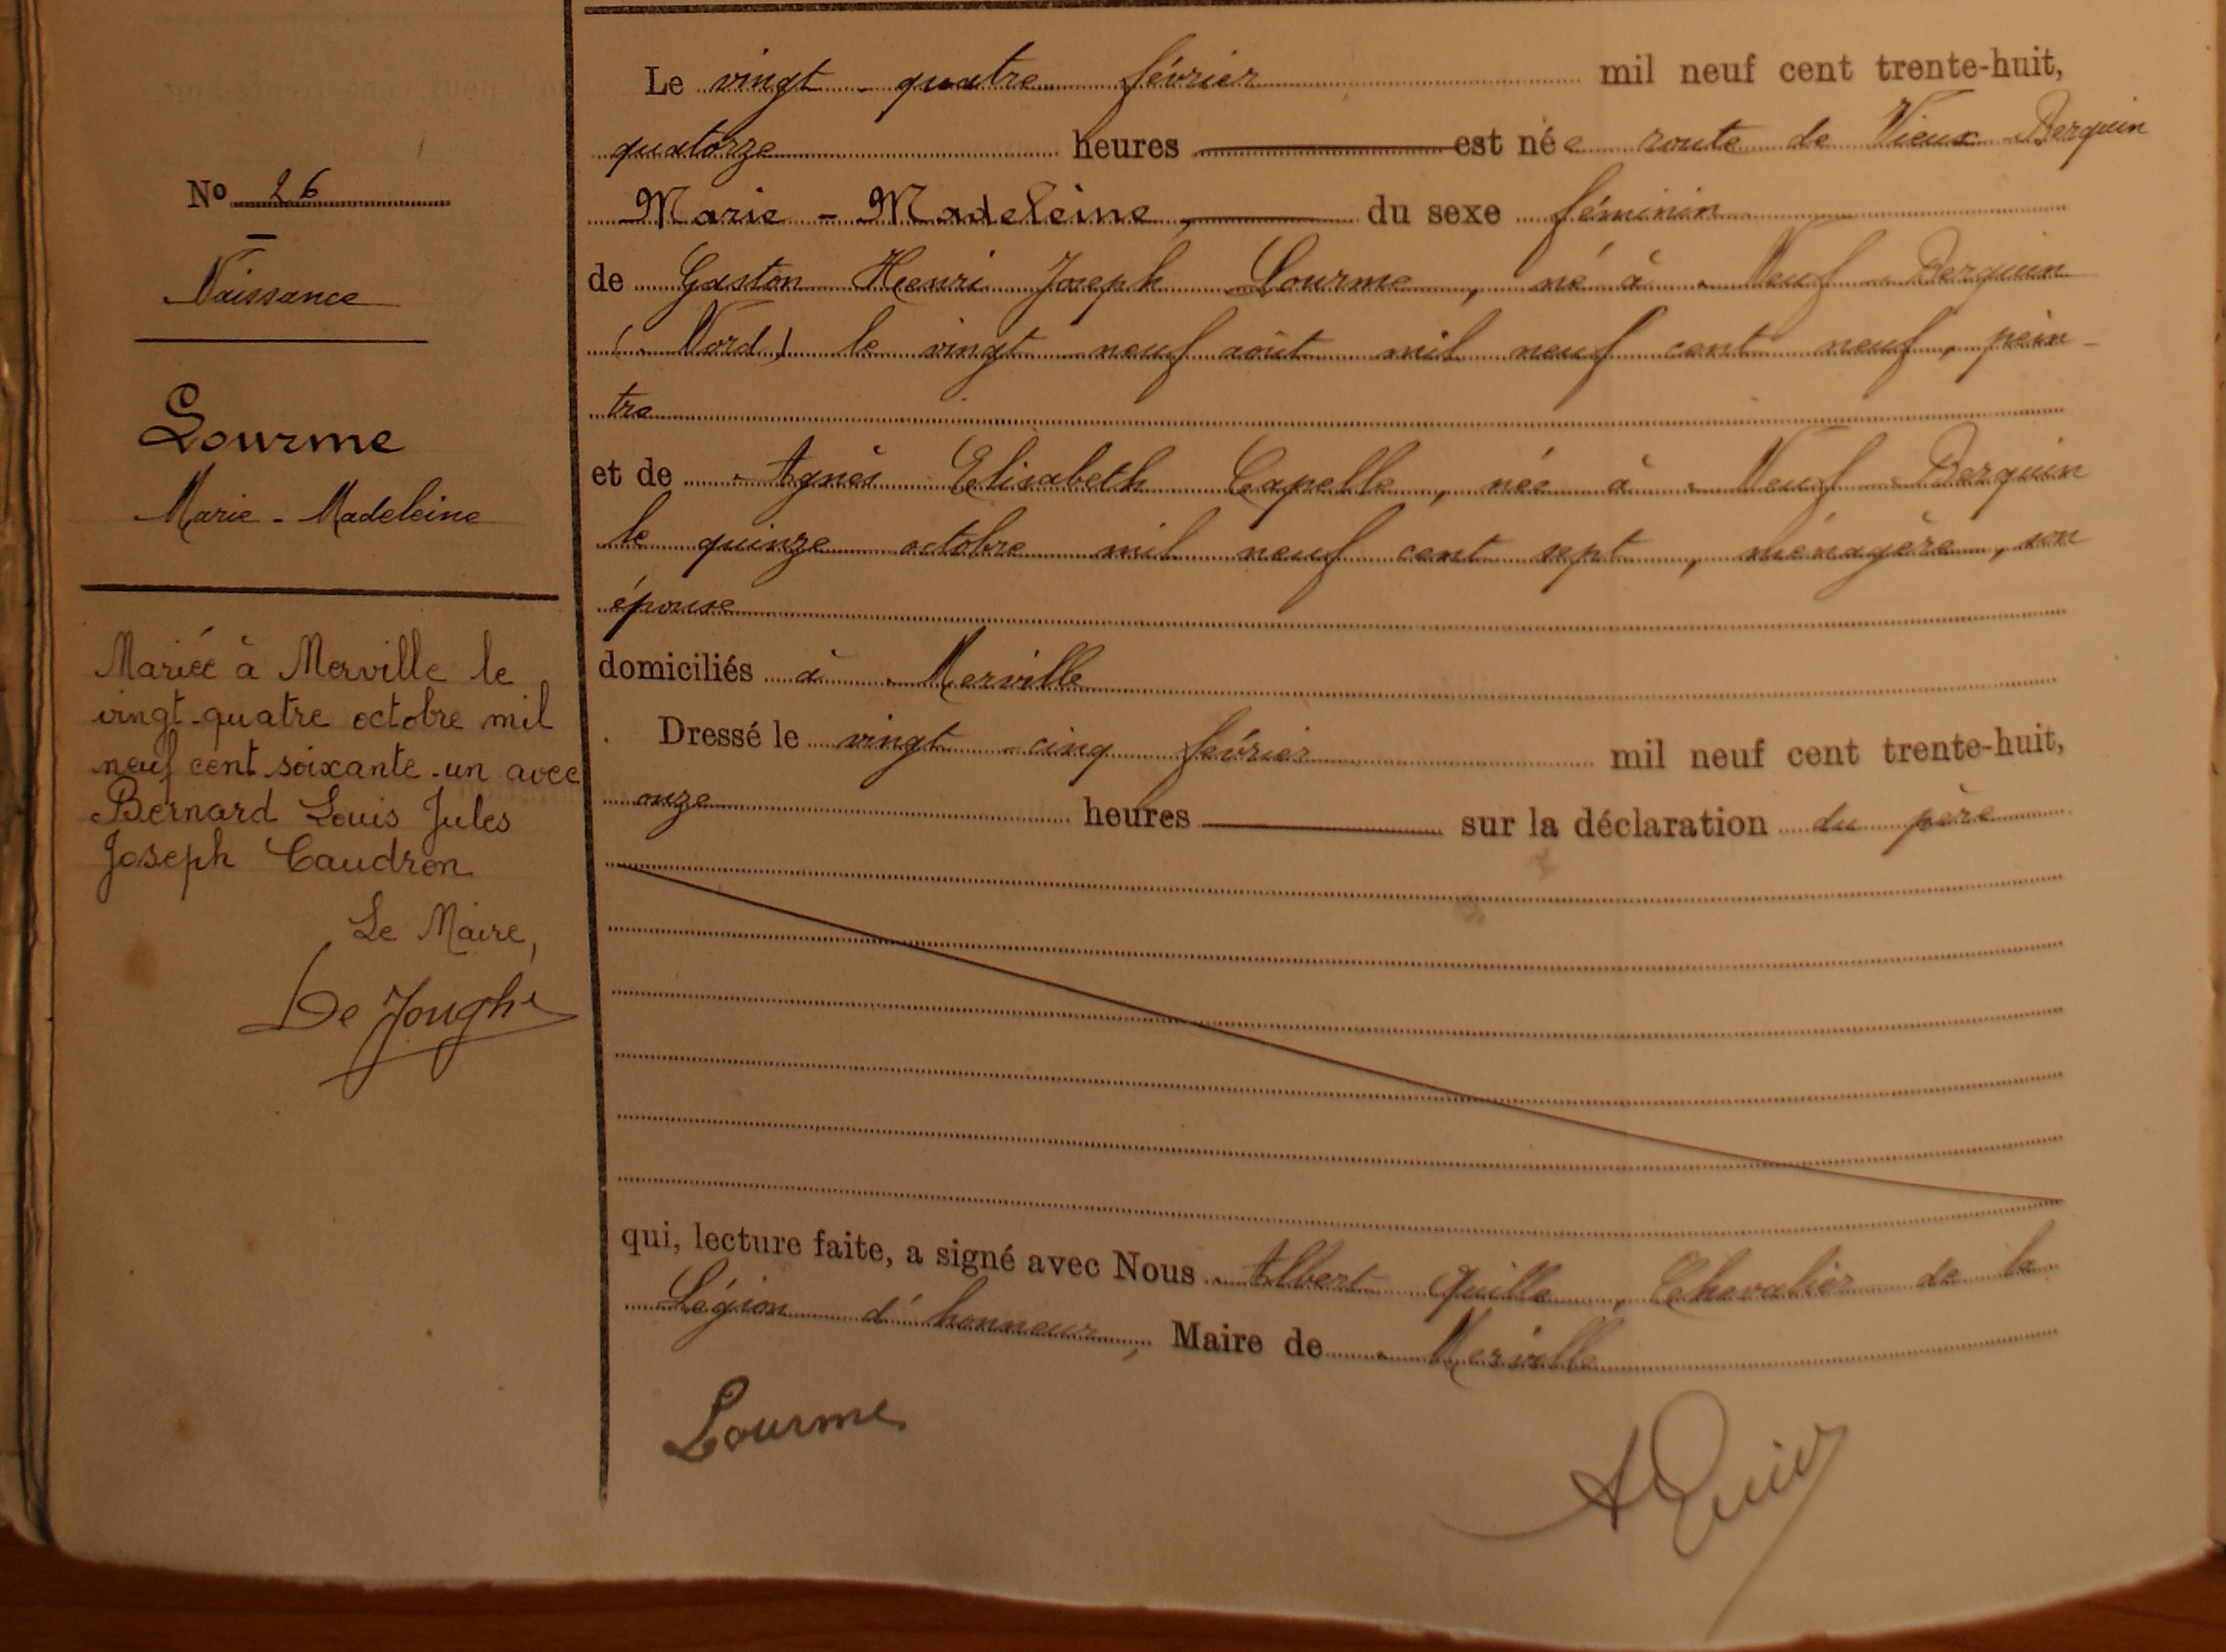 N° 26
Naissance
Lourme
Marie-Madeleine
Mariée à Merville le
vingt-quatre octobre mil
neuf cent soixante-un avec
Bernard Louis Jules
Joseph Caudron
Le Maire,
Le vingt-quatre février mil neuf cent trente-huit,
quatorze heures est née route de Vieux-Berquin
Marie-Madeleine, du sexe féminin
de Gaston Henri Joseph Lourme, né à Neuf-Berquin
(Nord) le vingt neuf août mil neuf cent neuf, pein-
tre
et de Agnès Elisabeth Capelle, née à Neuf-Berquin
le quinze octobre mil neuf cent sept, ménagère, son
épouse
domiciliés à Merville
Dressé le vingt-cinq février mil neuf cent trente-huit,
onze heures sur la déclaration du père
qui, lecture faite, a signé avec Nous Albert Quille, Chevalier de la
Légion d'honneur, Maire de Merville
Lourme